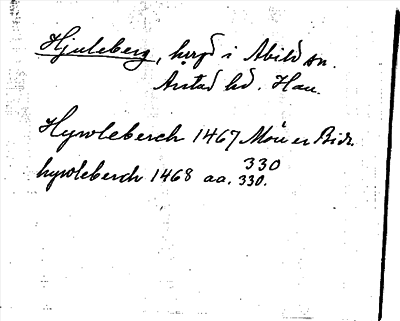 Hjuleberg, hrgd i Abild sn.
Årstad hd. Hall.
Hywleberch 1467 Möller Bidr.
330
hywleberch 1468 aa. 330.